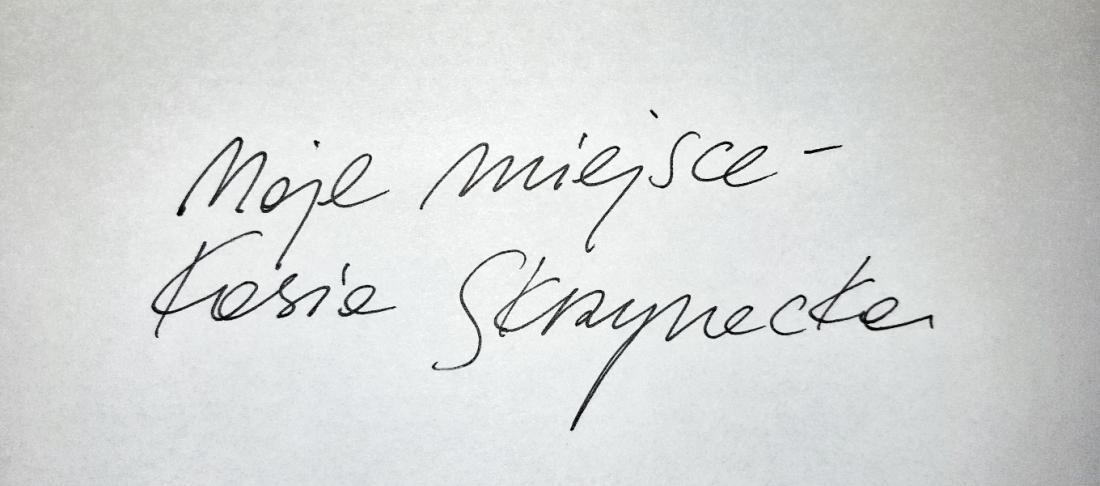 Moje miejsce -
Kasia Skrzynecka